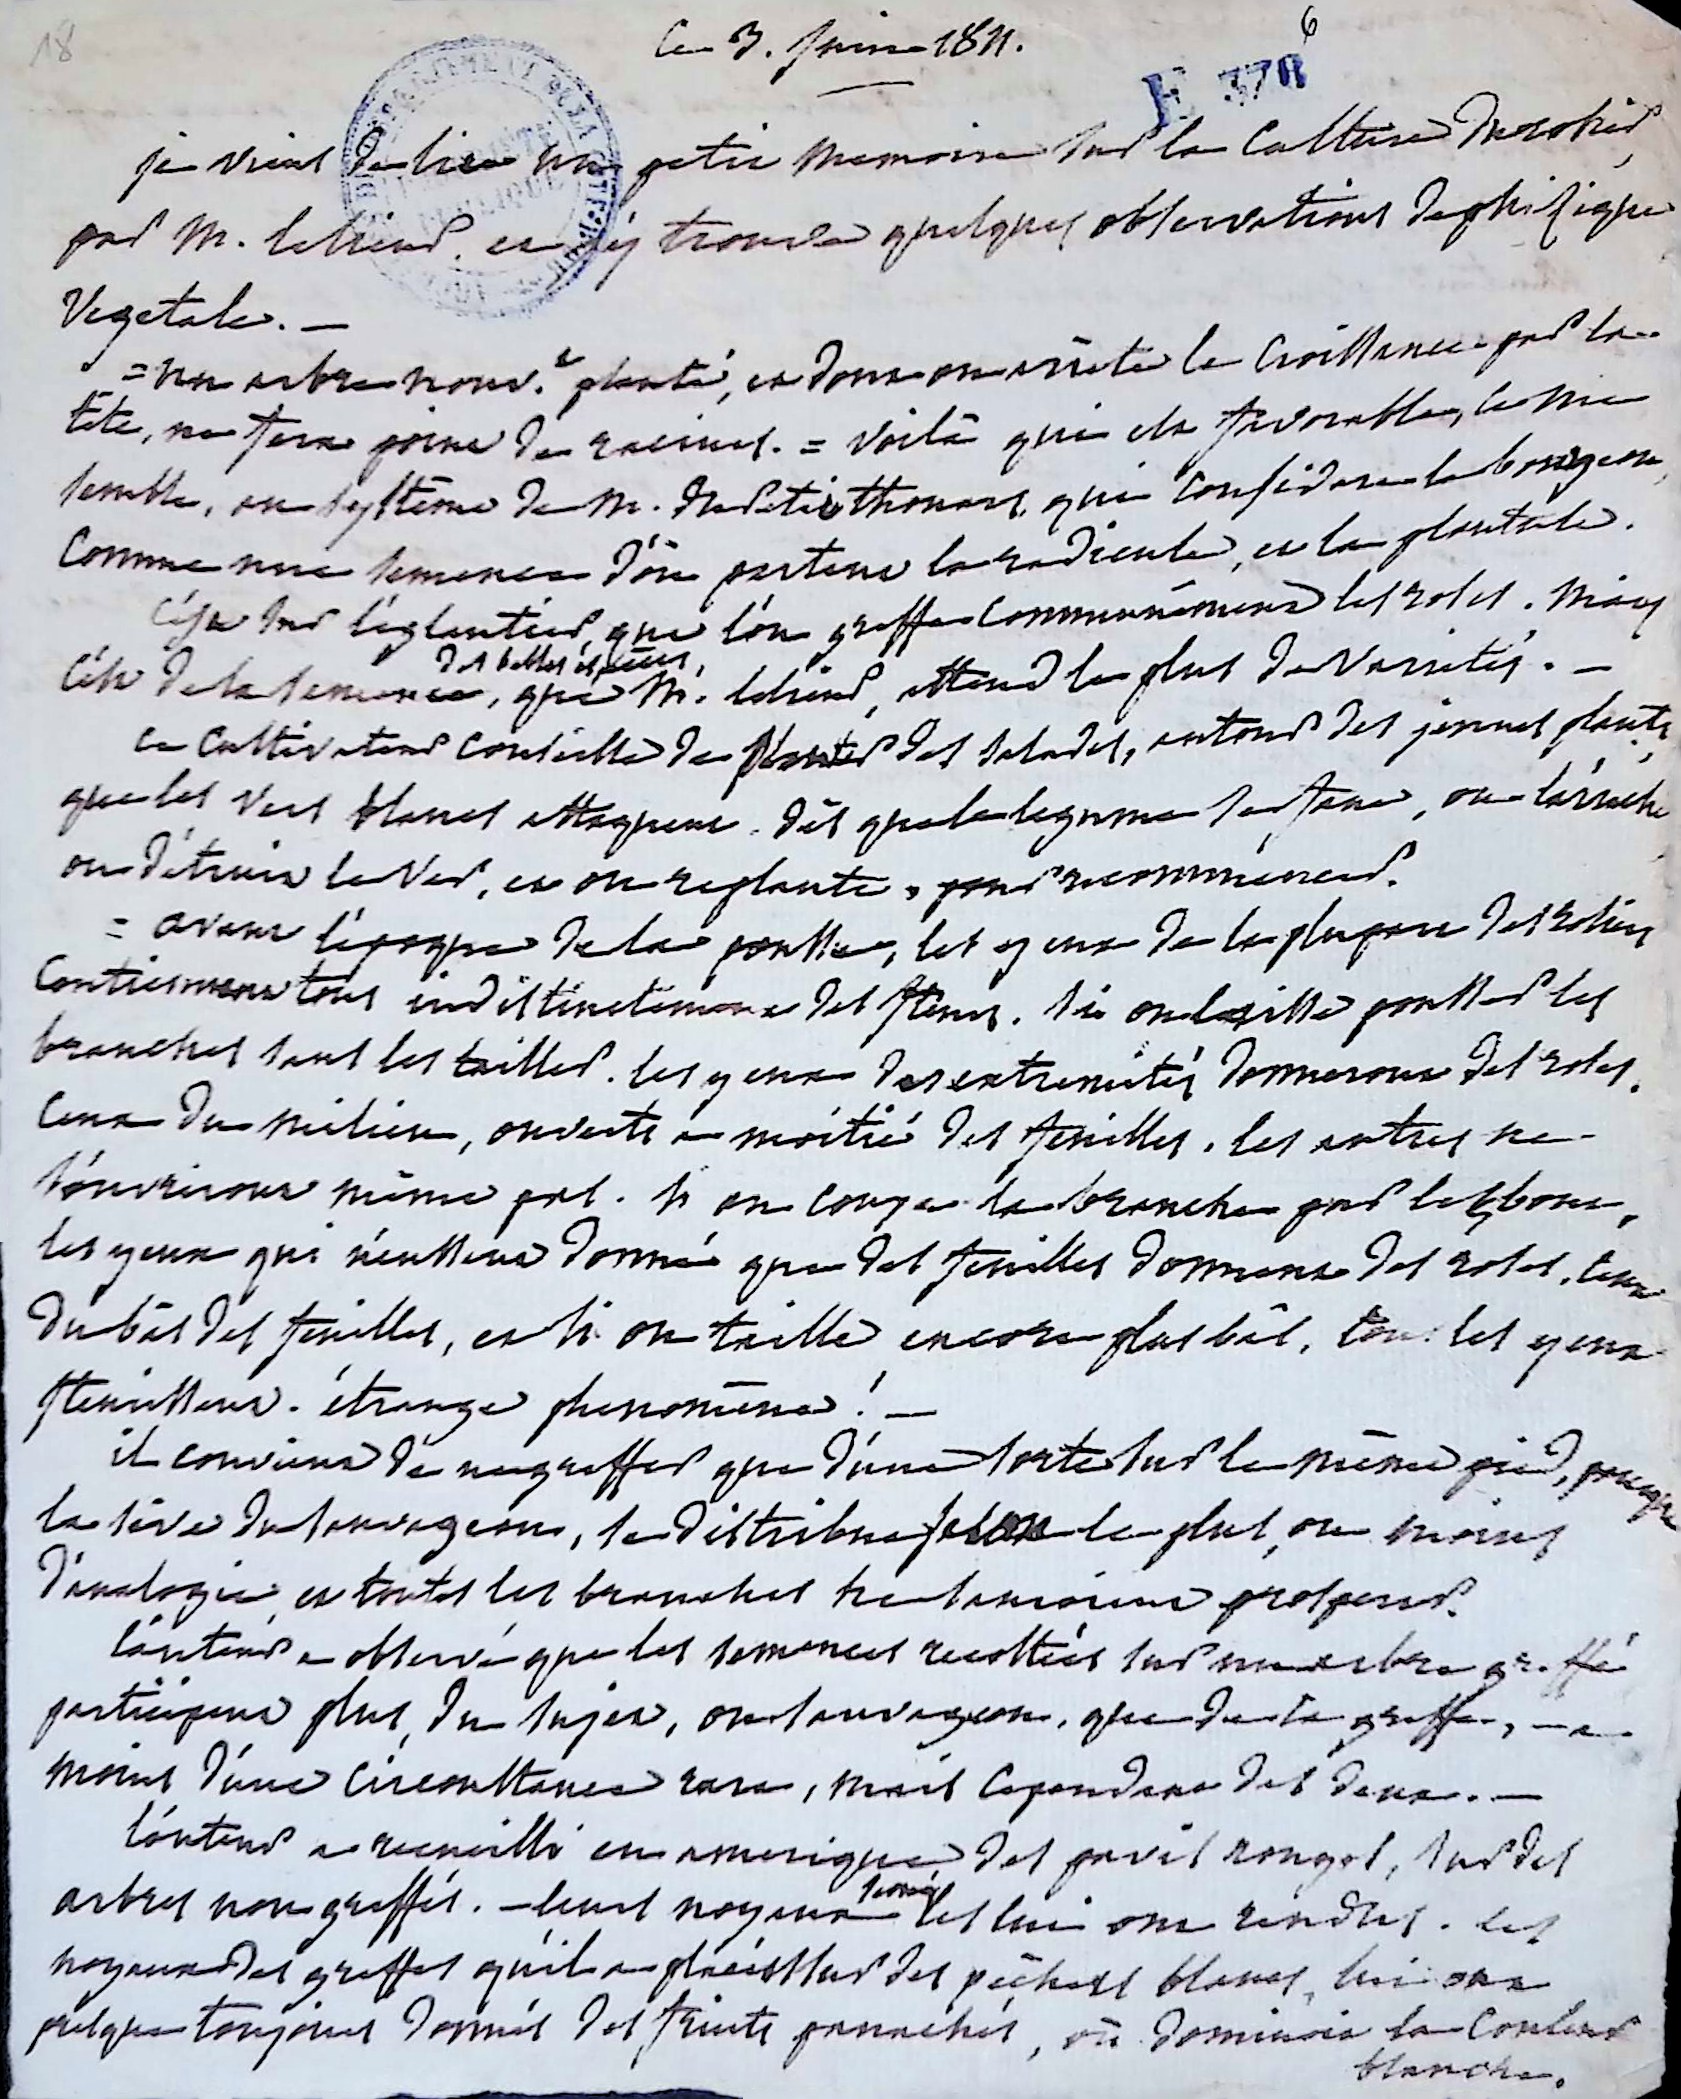 18
Ce 3. Juin 1811.
6
E 378
je viens de lire un petit memoire sur la Culture du rosier,
par M. lelieur. et j'y trouve quelques observations de phisique
Vegetale. —
= un arbre nouv.t planté, et dont on arrête la Croissance par la
tête, ne fera point de racines. = voilà qui est favorable, ce me
semble, au système de M. du petit thouars, qui considere le bourgeon,
Comme une semence d'ou partent la radicule, et la plantule.
C'est sur l'églantier, que l'on greffe communément les roses. mais
C'est de la semence des belles éspèces, que M. lelieur, attend le plus de varietés. —
ce cultivateur conseille de planter des salades, autour des jeunes plants,
que les vers blancs attaquent. dès que le legume se fane, on l'arrache
on détruit le ver, et on replante, pour recommencer.
= avant l'epoque de la pousse, les yeux de la plupart des rosiers
Contiennent tous indistinctement des fleurs. Si on laisse pousser les
branches sans les tailler. les yeux des extremités donneront des roses.
Ceux du milieu, ouverts a moitié des feuilles. les autres ne
s'ouvriront même pas. Si on coupe la branche par le bout,
les yeux qui n'eussent donné que des feuilles donnent des roses. ceux
du bas des feuilles, et si on taille encore plus bas, tous les yeux
fleurissent. étrange phenomène! —
il convient de ne greffer que d'une sorte sur le même pied, parceque
la sève du sauvageon, se distribue selon le plus, ou moins
d'analogie, et toutes les branches ne sauroient prosperer.
L'auteur a observé que les semences recoltées sur un arbre greffé
participent plus, du sujet, ou sauvageon, que de la greffe, — a
moins d'une circonstance rare, mais cependant des deux. —
L'auteur a recueilli en amerique, des pavis rouges, sur des
arbres non greffés. — leurs noyaux semés les lui ont rendus. les
noyaux des greffes qu'il a placées sur des pêchers blancs, lui ont
presque toujours donnés des fruits panachés, où dominoit la Couleur
blanche.